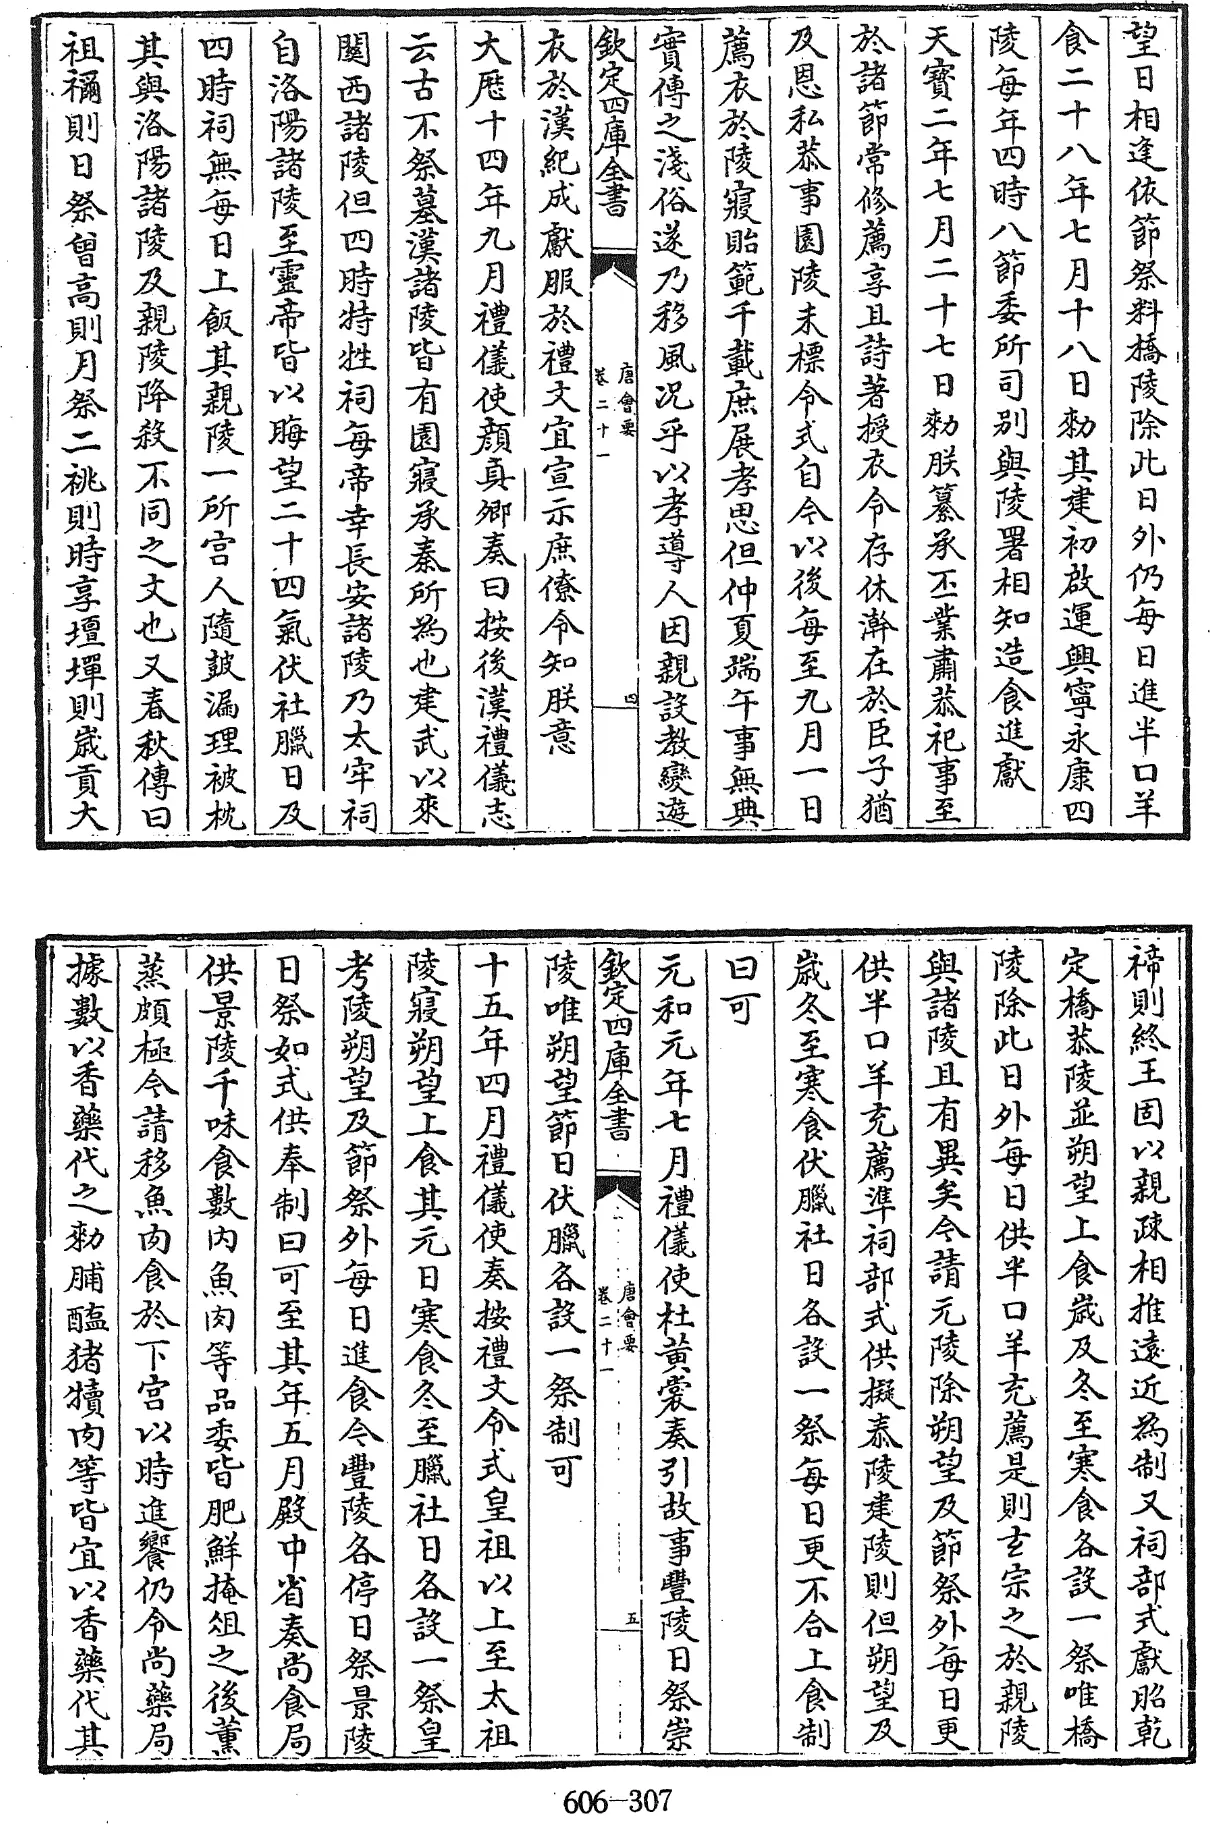 望日相逢依節祭料橋陵除此日外仍每日進半口羊
食二十八年七月十八日勅其建初啟運興寧永康四
陵每年四時八節委所司别與陵署相知造食進獻
天寶二年七月二十七日勅朕纂承丕業肅恭祀事至
於諸節常修薦享且詩著授衣令存休澣在於臣子猶
及恩私恭事園陵未標令式自今以後每至九月一日
薦衣於陵寢貽範千載庶展孝思但仲夏端午事無典
實傳之淺俗遂乃移風況乎以孝導人因親設教變遊
欽定四庫全書
唐會要
卷二十一
四
衣於漢紀成獻服於禮文宜宣示庶僚令知朕意
大厯十四年九月禮儀使顔真卿奏曰按後漢禮儀志
云古不祭墓漢諸陵皆有園寢承秦所為也建武以來
關西諸陵但四時特牲祠每帝幸長安諸陵乃太牢祠
自洛陽諸陵至靈帝皆以晦望二十四氣伏社臘日及
四時祠無每日上飯其親陵一所宫人隨鼓漏理被枕
其與洛陽諸陵及親陵降殺不同之文也又春秋傳曰
祖禰則日祭曾高則月祭二祧則時享壇墠則歲貢大
禘則終王固以親疎相推遠近為制又祠部式獻昭乾
定橋恭陵並朔望上食歲及冬至寒食各設一祭唯橋
陵除此日外每日供半口羊充薦是則玄宗之於親陵
與諸陵且有異矣今請元陵除朔望及節祭外每日更
供半口羊充薦準祠部式供擬泰陵建陵則但朔望及
歲冬至寒食伏臘社日各設一祭每日更不合上食制
曰可
元和元年七月禮儀使杜黄裳奏引故事豐陵日祭崇
欽定四庫全書
唐會要
卷二十一
五
陵唯朔望節日伏臘各設一祭制可
十五年四月禮儀使奏按禮文令式皇祖以上至太祖
陵寢朔望上食其元日寒食冬至臘社日各設一祭皇
考陵朔望及節祭外每日進食今豐陵各停日祭景陵
日祭如式供奉制曰可至其年五月殿中省奏尚食局
供景陵千味食數内魚肉等品委皆肥鮮掩俎之後薰
蒸頗極今請移魚肉食於下宫以時進饗仍令尚藥局
據數以香藥代之勅脯醢猪犢肉等皆宜以香藥代其
606-307